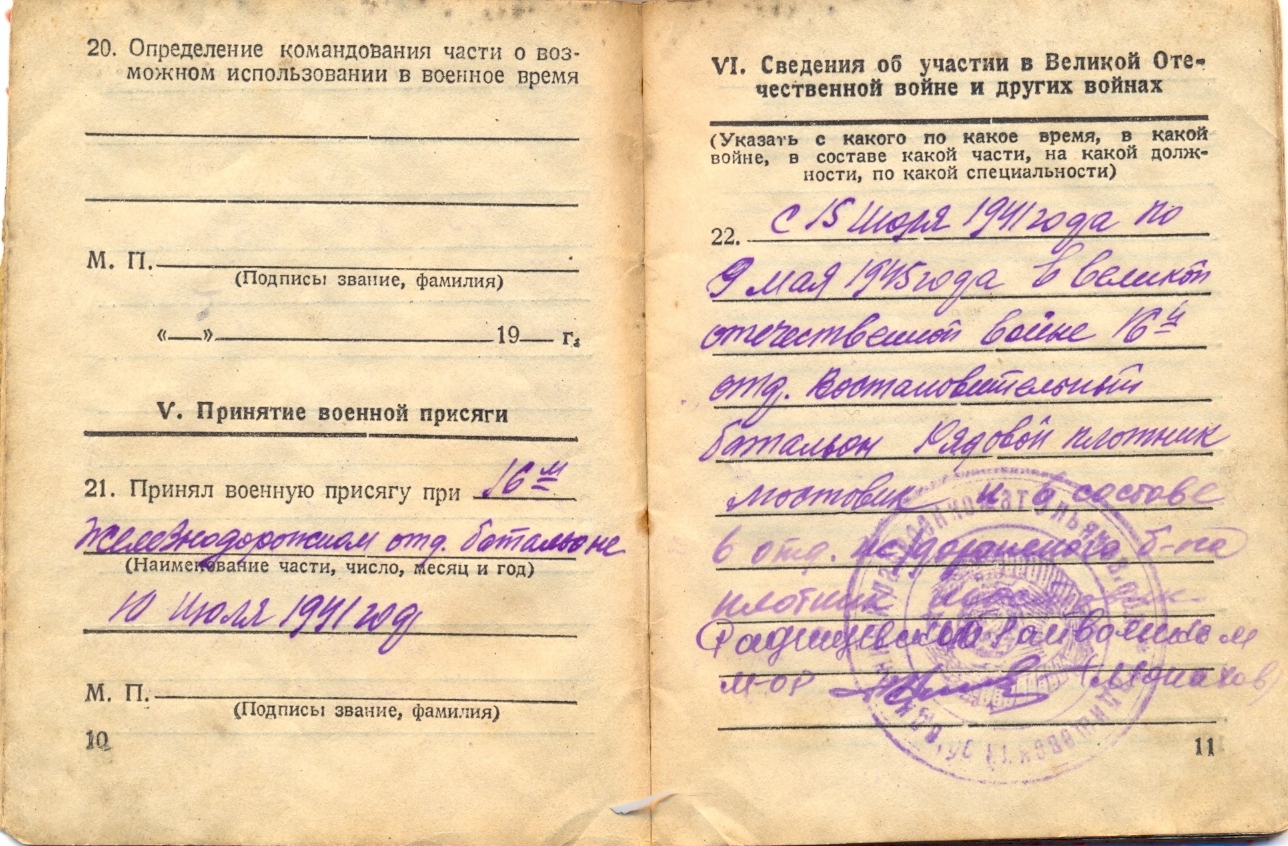 20. Определение командования части о воз-
можном использовании в военное время
М. П.
(Подписы звание, фамилия)
«—» 19— г.
V. Принятие военной присяги
21. Принял военную присягу при 16м
Железнодорожном отд. батальоне
(Наименование части, число, месяц и год)
10 Июля 1941 год
М. П.
(Подписы звание, фамилия)
10
VI. Сведения об участии в Великой Оте-
чественной войне и других войнах
(Указать с какого по какое время, в какой
войне, в составе какой части, на какой долж-
ности, по какой специальности)
22. С 15 Июля 1941 года по
9 мая 1945 года в великой
отечественной войне 16й
отд. Востановительный
батальон Рядовой плотник
мостовик и в составе
6 отд. б-на
плотник
Радищевский Райвоенком
м-ор (Монахов)
11